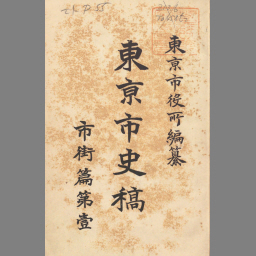 東京市役所編纂
東京市史稿
市街篇第壹